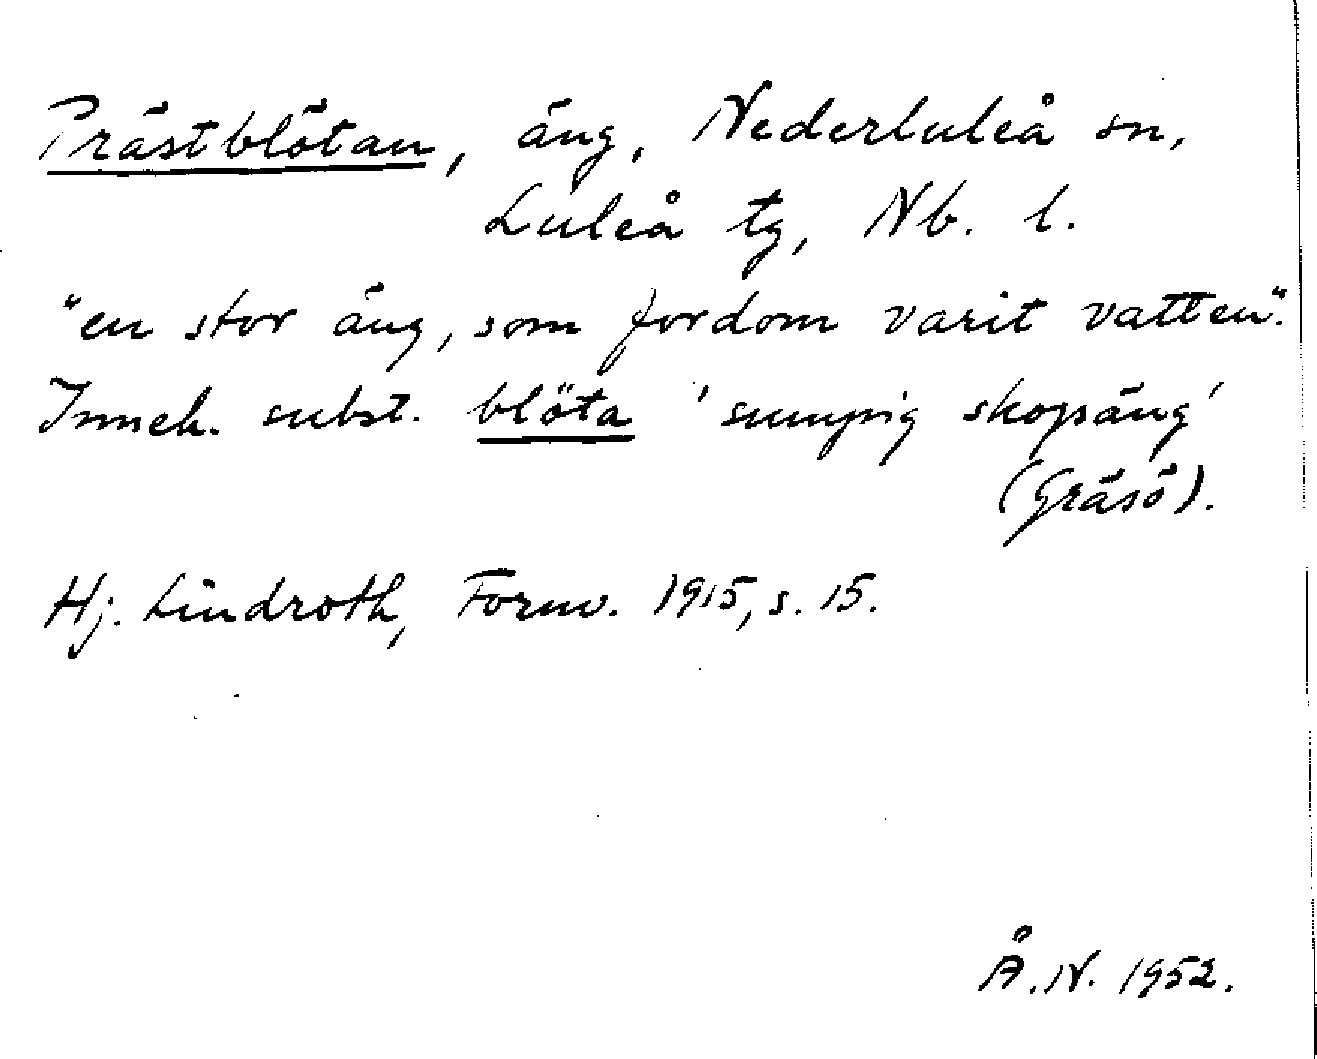 Prästblötan, äng, Nederluleå sn,
Luleå tg, Nb. l.
"en stor äng, som fordom varit vatten".
Inneh. subst. blöta 'sumpig skogsäng'
(Gräsö).
Hj. Lindroth, Fornv. 1915, s. 15.
Å.N. 1952.